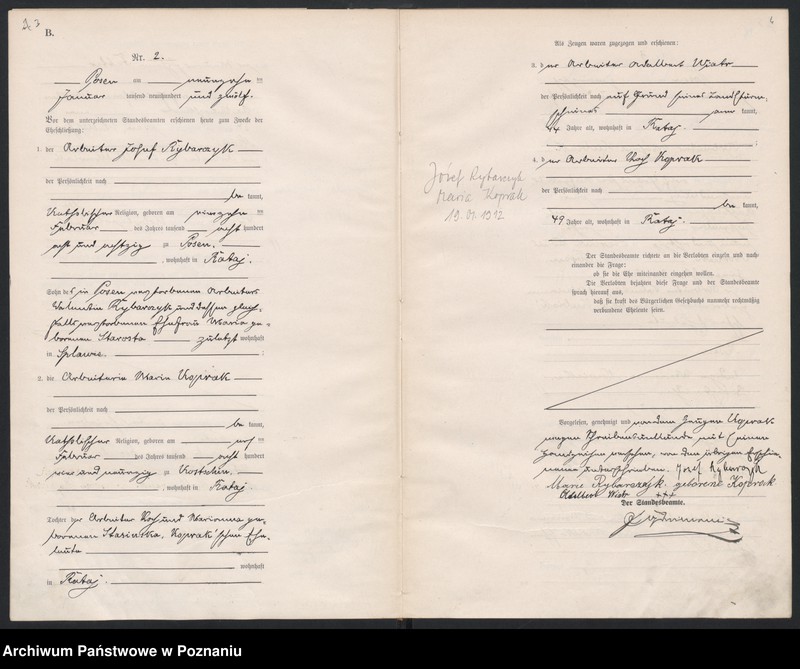 B.
Nr. 2.
Posen am neunzehn ten
Januar tausend neunhundert und zwölf.
Vor dem unterzeichneten Standesbeamten erschienen heute zum Zweck der
Eheschließung:
1. der Arbeiter Josef Rybarczyk
der Persönlichkeit nach
be kannt,
katholischer Religion, geboren am ten
Februar des Jahres tausend acht hundert
acht und achtzig zu Posen.
, wohnhaft in Rataj.
Sohn des in Posen verstorbenen Arbeiters
Valentin Rybarczyk und dessen gleich-
falls verstorbenen Ehefrau Maria ge-
borenen Starosta zuletzt wohnhaft
in Splawie.
2. die Arbeiterin Maria Koprak
der Persönlichkeit nach
be kannt,
katholischer Religion, geboren am ten
Februar des Jahres tausend acht hundert
und neunzig zu Kostschin.
, wohnhaft in Rataj.
Tochter der Arbeiter Roch und Marianna ge-
borenen Stasinska, Koprak'schen Ehe-
leute
wohnhaft
in Rataj.
Als Zeugen waren zugezogen und erschienen:
3. der Arbeiter Adalbert Wiatr
der Persönlichkeit nach auf Grund seines Landsturm-
scheines aner kannt,
44 Jahre alt, wohnhaft in Rataj.
4. der Arbeiter Roch Koprak
der Persönlichkeit nach
be kannt,
49 Jahre alt, wohnhaft in Rataj.
Józef Rybarczyk
Maria Koprak
19.01.1912
Der Standesbeamte richtete an die Verlobten einzeln und nach-
einander die Frage:
ob sie die Ehe miteinander eingehen wollen.
Die Verlobten bejahten diese Frage und der Standesbeamte
sprach hierauf aus,
daß sie kraft des Bürgerlichen Gesetzbuchs nunmehr rechtmäßig
verbundene Eheleute seien.
Vorgelesen, genehmigt und von dem Zeugen Koprak
wegen Schreibensunkunde mit seinem
Handzeichen versehen, von den übrigen Erschie-
nenen unterschrieben. Josef Rybarczyk
Marie Rybarczyk geborene Koprak
Adalbert Wiatr +++
Der Standesbeamte.
Archiwum Państwowe w Poznaniu